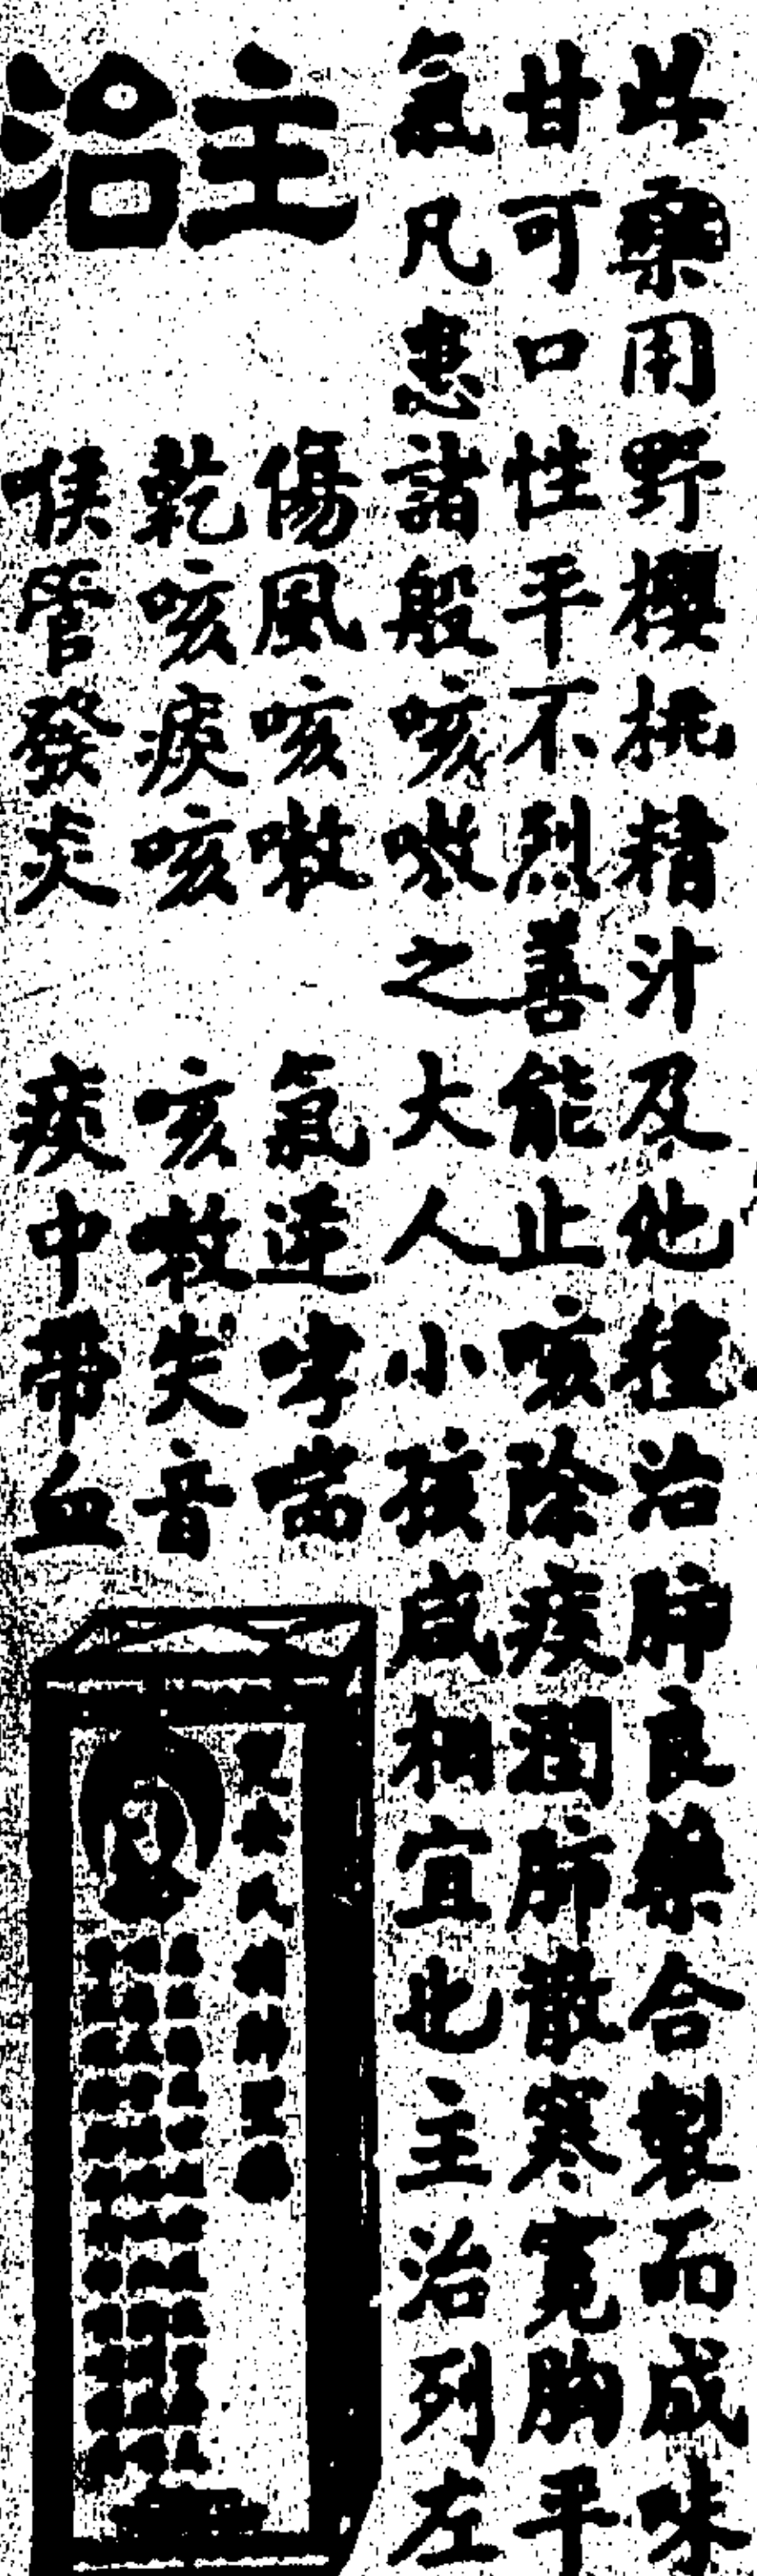 此藥用野櫻桃精汁及他種治肺良藥合製而成味
甘可口性平不烈善能止咳除痰潤肺散寒寬胸平
氣凡患諸般咳嗽之大人小孩咸相宜也主治列左
主治
傷風咳嗽 氣逆哮喘
乾咳痰咳 咳救失音
喉管發炎 痰中帶血